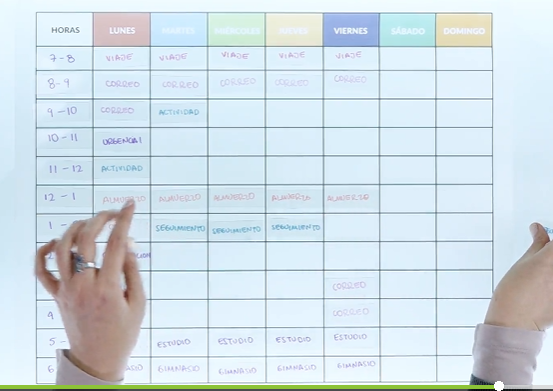 HORAS LUNES MARTES MIÉRCOLES JUEVES VIERNES SÁBADO DOMINGO
7-8 VIAJE VIAJE VIAJE VIAJE VIAJE
8-9 CORREO CORREO CORREO CORREO CORREO
9-10 CORREO ACTIVIDAD
10-11 URGENCIA1
11-12 ACTIVIDAD
12-1 ALMUERZO ALMUERZO ALMUERZO ALMUERZO ALMUERZO
1- SEGUIMIENTO SEGUIMIENTO SEGUIMIENTO
CORREO
4 CORREO
5- ESTUDIO ESTUDIO ESTUDIO ESTUDIO
6 GIMNASIO GIMNASIO GIMNASIO GIMNASIO